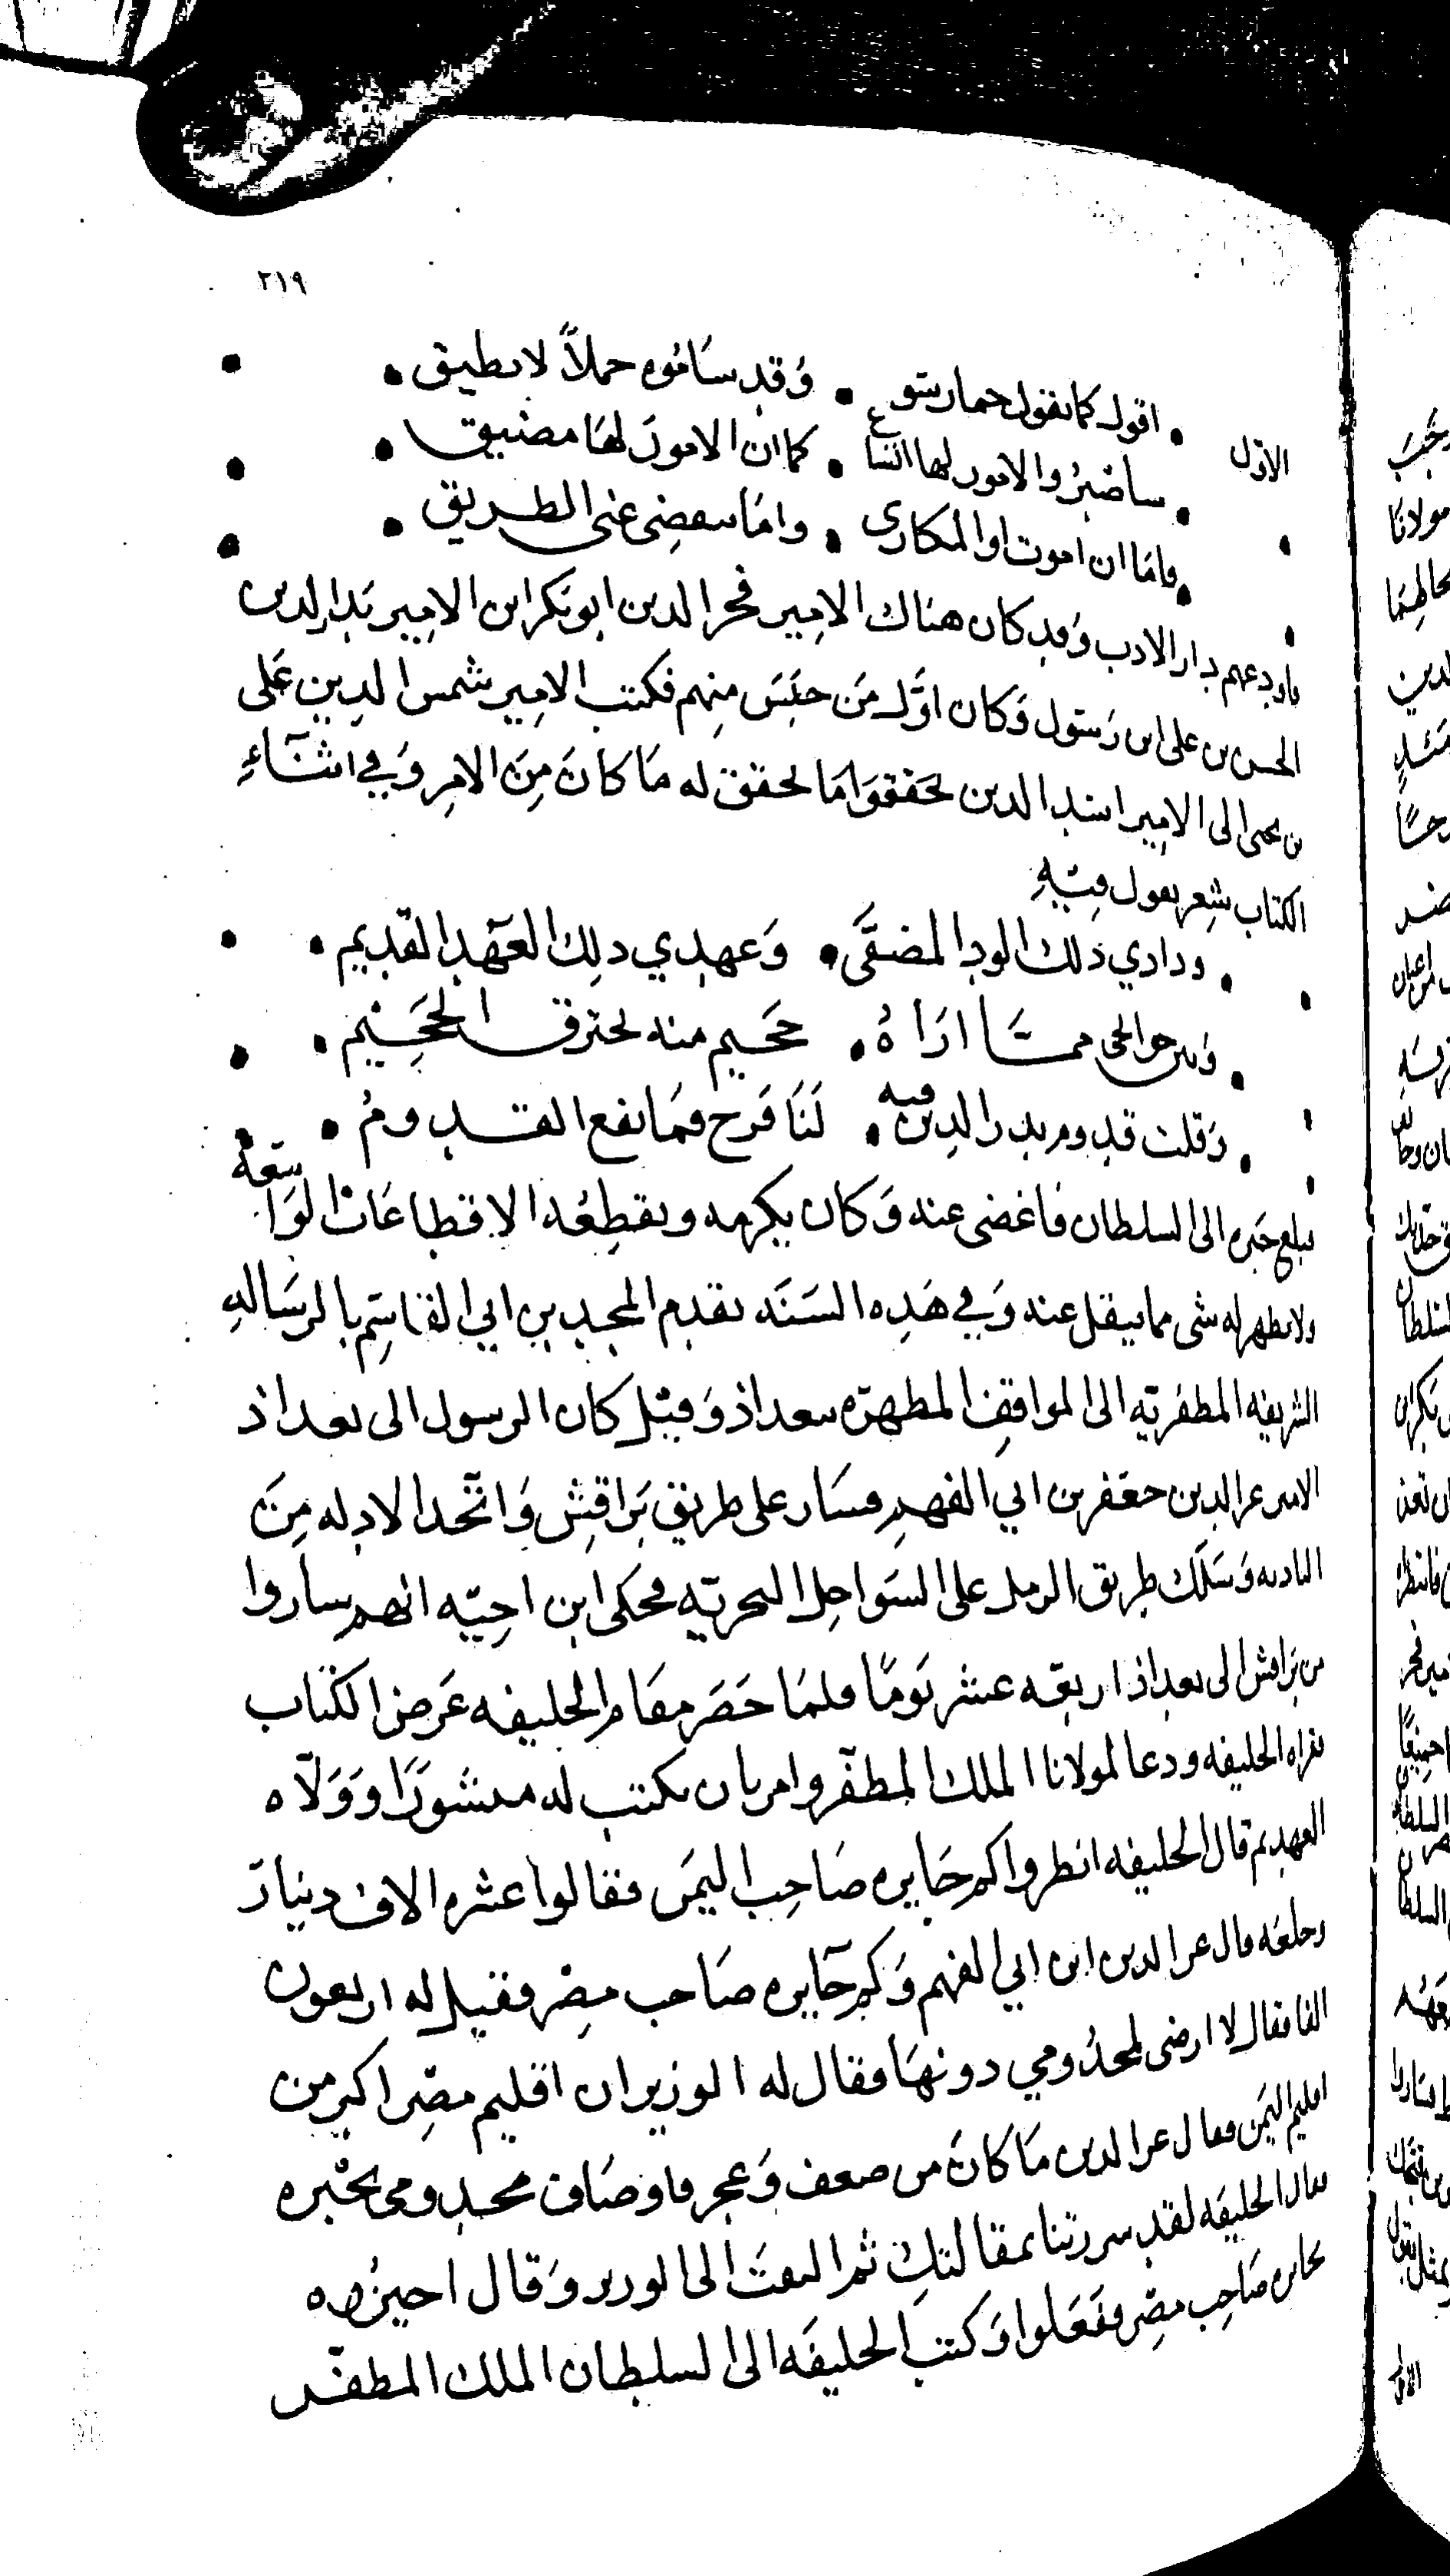 ٢١٩
الاول اقول كما يقول حمار سَوْ وَقد سَامُوه حملاً لا يطيق
سأصبرُ والامور لها اتساع كما ان الامورَ لهَا مضيق
فامّا ان اموت او المكارى وامّا ينقضِى عنى الطريق
فاودعهم دار الادب وَقد كان هناك الامير فخر الدين ابو بكر ابن الامير بَدر الدين
الحسن بن على ابن رَسَول وَكان اوَّل مَن حبَسَ منهم فكتب الامير شمس الدِين عَلى
بن يحيى الى الامير اسد الدين تحققوَا مَا تحقق له مَا كانَ مِنَ الامرِ وَفي اثنآءِ
الكتاب شِعر يقول فيْهِ
ودادي ذلك الود المصفَّى وَعهدي ذلك العَهْد القديم
وَبين جوانحى ممـَّا ارَاهُ جَحيـم منه تحترق الجَحِيم
وَقلت قدوم بدر الدِين فيه لَنَا فَرح فمَا نفع القــدومُ
فبلغ خبره الى السلطان فاغضى عنه وَكان يكرمه ويقطِعُه الاقطاعَات الوَاسِعَة
ولا يظهر له شى مما ينقل عنه وَفي هَذِه السَنَه تقدم المجد بن ابي القاسِم بالرسَالهِ
الشريفه المظفريّه الى المواقفِ المطهرّه ببغداذ وَقيْل كان الرسول الى بغداذ
الامير عز الدين جعَفر بن ابي الفهم فسَار على طريق بَرَاقِش وَاتّخد الادله مِنَ
الباديه وَسَلَك طريق الرمل على السَوَاحِل البحريّه فحكى ابن اخيْه انهم ساروا
من بَراقش الى بغداذ اربعَه عشر يَومًا فلمَا حَضَر مقَام الخليفه عَرض الكتاب
فقراه الخليفه ودعا لمولانا الملك المظفّر وامر بان يكتب له منشورًا وَوَلاّه
العهد ثم قال الخليفه انظروا كم جَايزه صَاحِب اليمَن فقالوا عشره الاف دينار
وخلعَه فقال عز الدين ابن ابي الفهم وَكم جَآيزه صَاحب مِصْر فقيل له اربعون
الفا فقال لا ارضى لمخدُومي دونهَا فقال له الوزير ان اقليم مصِر اكبر من
اقليم اليمَن فقال عز الدين مَا كانَ من ضعف وَعجز فاوصَاف مخدومى تجْبره
فقال الخليفَه لقد سررتنا بمقالتِك ثم التفتَ الى الوزير وَقال اجيزُوه
بجايزه صَاحِب مصِر ففَعَلوا وَكتبَ الخليفَه الى السلطان الملك المظفّر